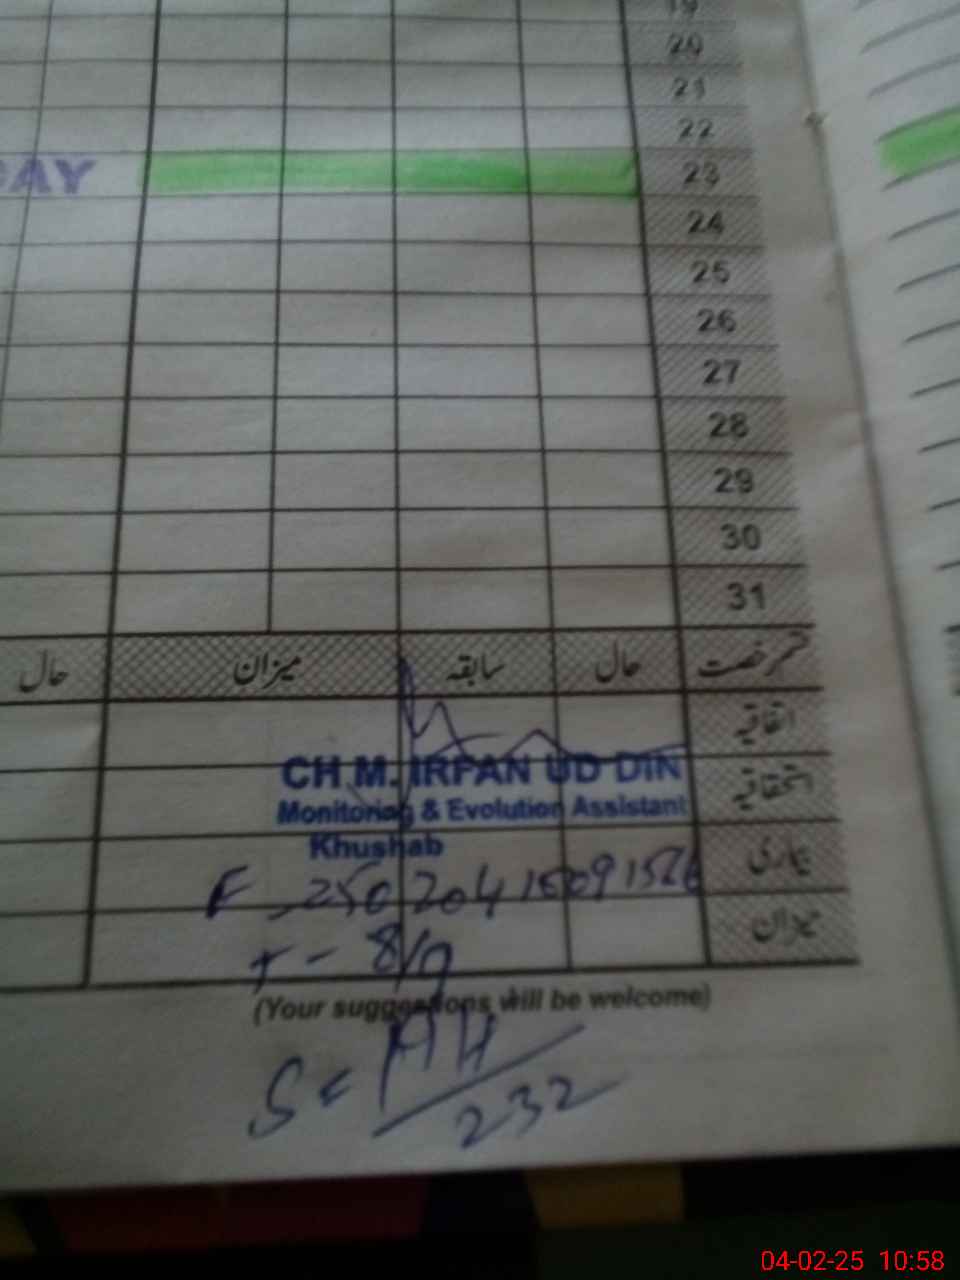 19
20
21
22
DAY 23
24
25
26
27
28
29
30
31
حال میزان سابقہ حال قسم رخصت
اتفاقیہ
CH M. IRFAN UD DIN استحقاقیہ
Monitoring & Evolution Assistant
Khushab بیماری
F 250204
T - 8/9 میزان
(Your suggestions will be welcome)
S =
232
04-02-25 10:58